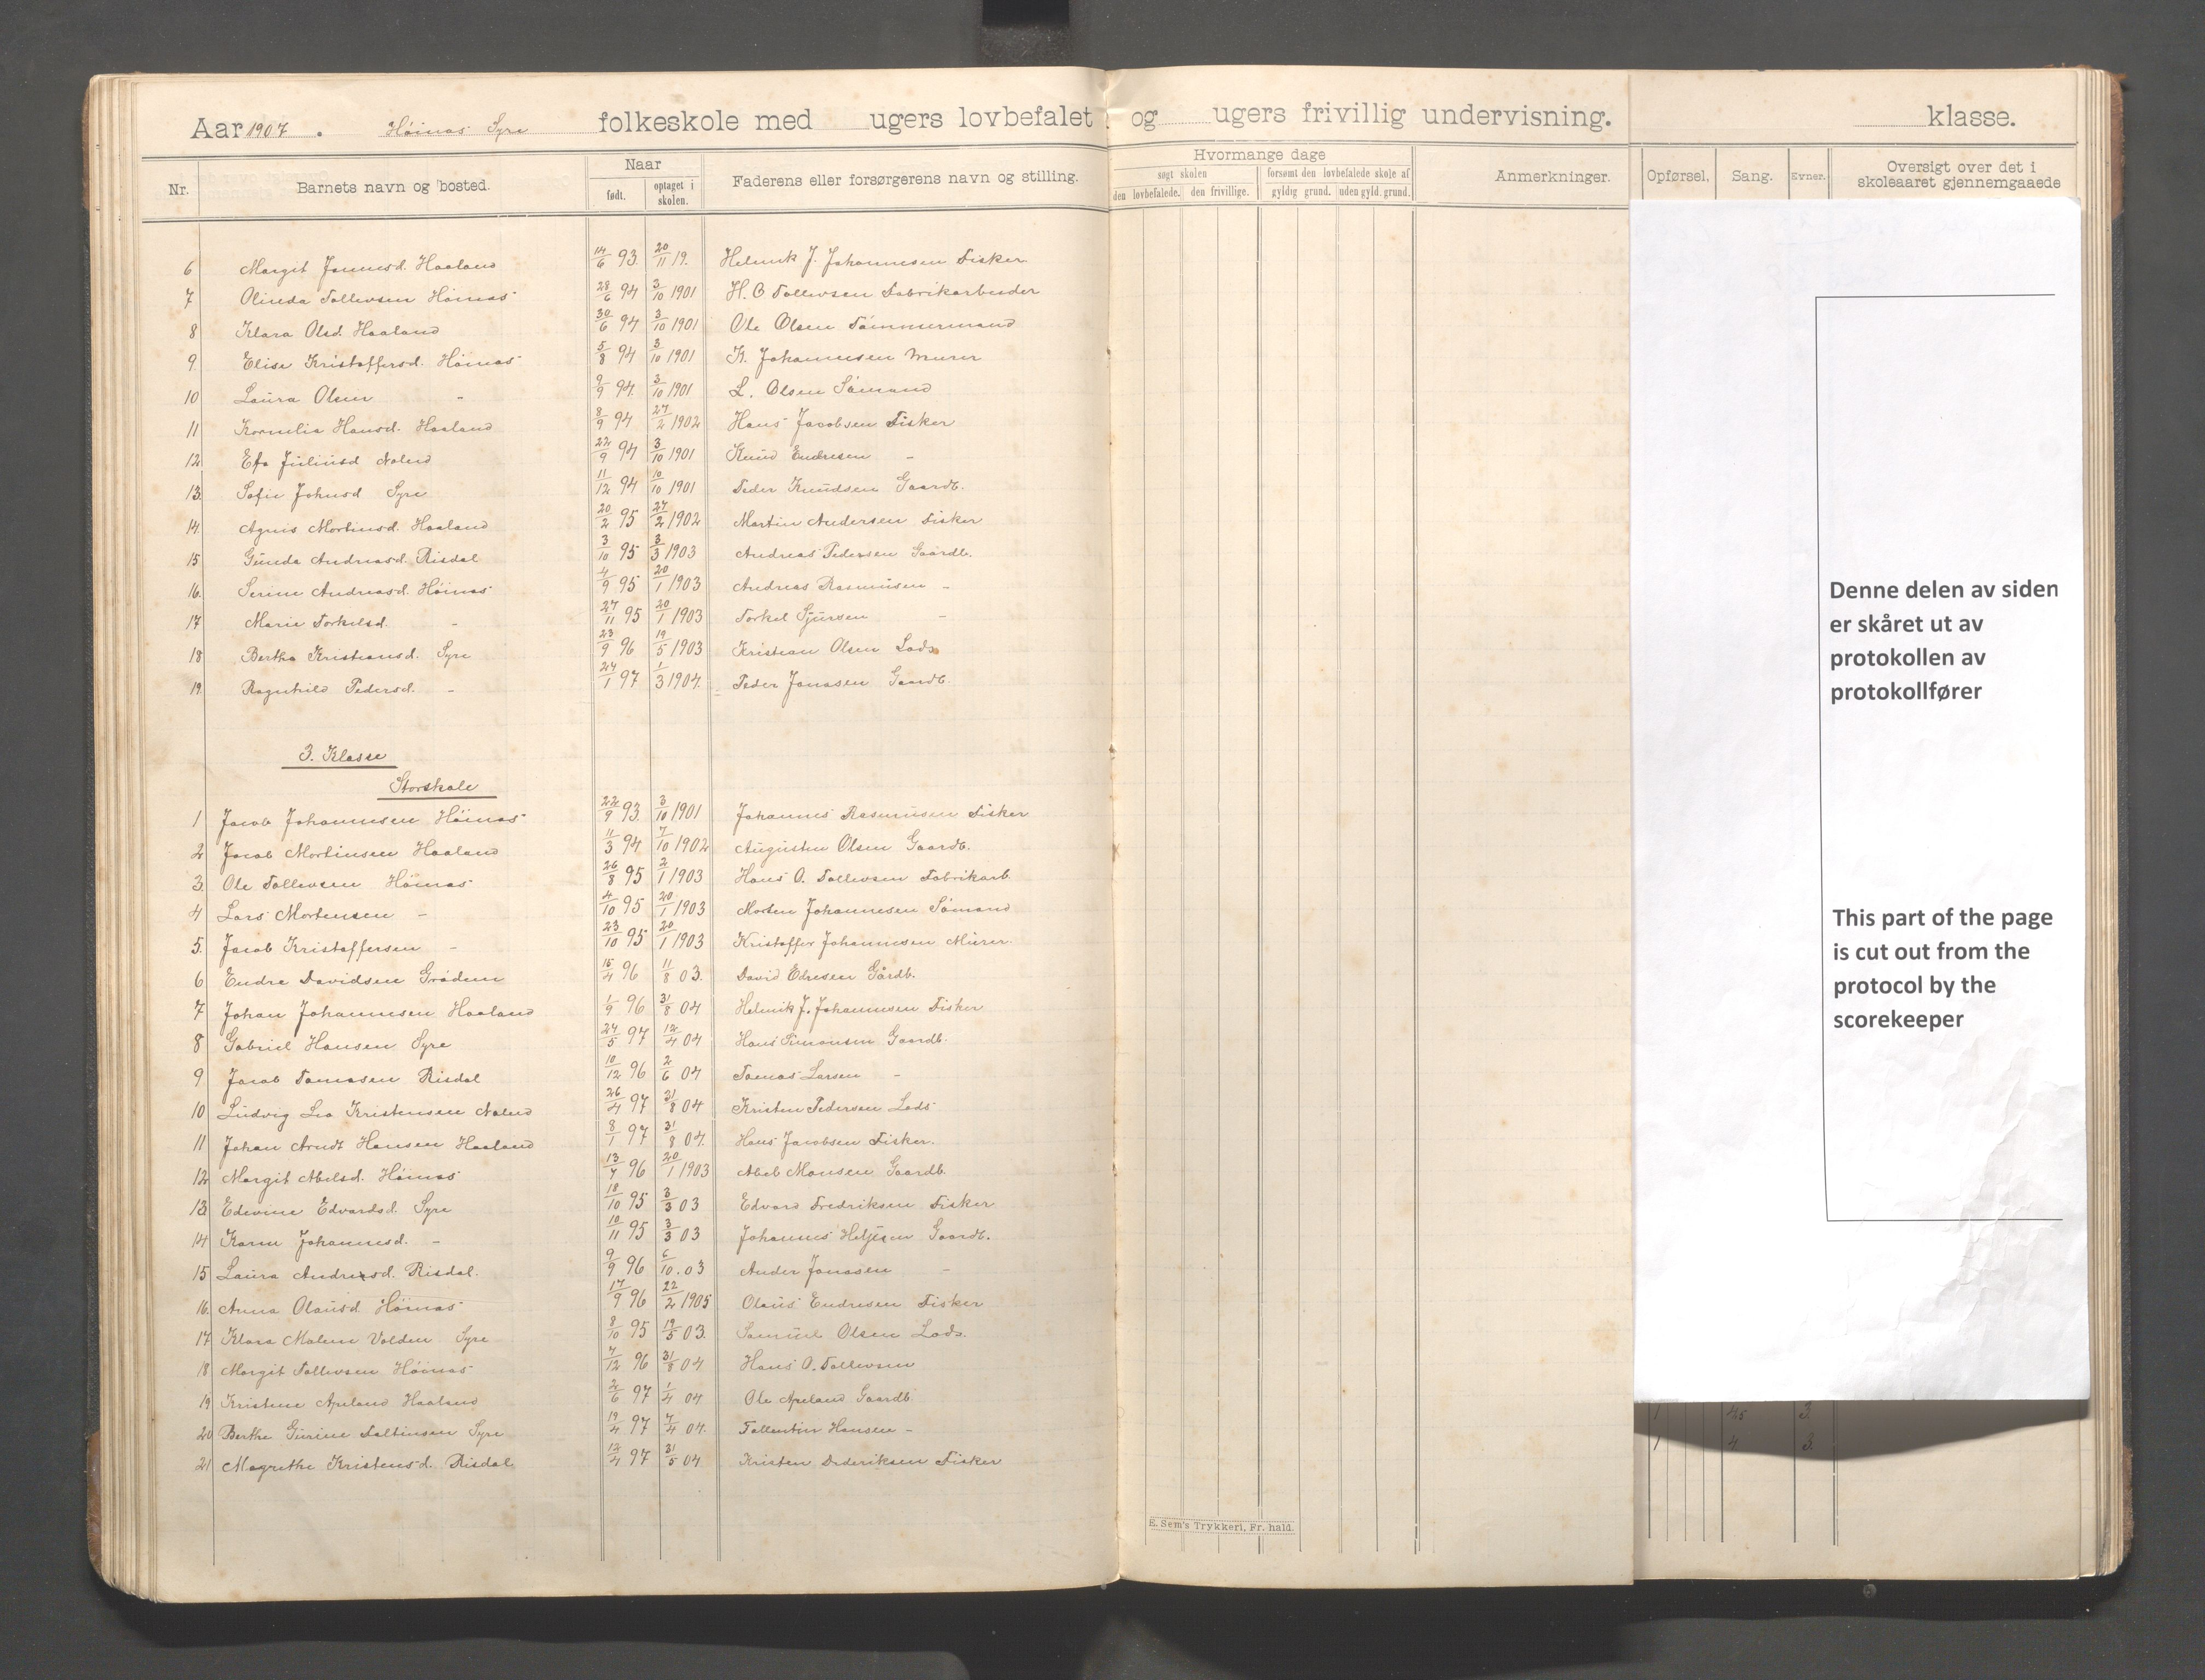 Aar 1907. Höinas Syre folkeskole med ugers lovbefalet og ugers frivillig undervisning. klasse.
Nr. Barnets navn og bosted. Naar født. optaget i skolen. Faderens eller forsørgerens navn og stilling. Hvormange dage søgt skolen den lovbefalede. den frivillige. forsømt den lovbefalede skole af gyldig grund. uden gyld. grund. Anmerkninger. Opførsel, Sang. Evner. Oversigt over det i skoleaaret gjennemgaaede
6 Margit Haaland 14/6 93. 20/11 19. Helmik J. Johannesen Fisker
7 Olinda Tollevsen Höinas 28/6 94 3/10 1901 H. O Tollevsen Fabrikarbeider
8 Klara Olsd. Haaland 30/6 94 3/10 1901 Ole Olsen Tömmermand
9 Elise Kristoffersd. Höinas 5/8 94 3/10 1901 K. Johannesen Murer
10 Laura Olsen " 9/9 94. 3/10 1901 L. Olsen Sömand
11 Kornelia Hansd. Haaland 8/9 94 27/2 1902 Hans Jacobsen Fisker
12 Juliusd 22/9 94 3/10 1901 Knud Endresen "
13. Sofie Johnsd Syre 11/12 94 10/10 1901 Peder Knudsen Gaardb.
14. Agnes Mortinsd. Haaland 20/2 95 27/2 1902 Martin Andersen Fisker
15 Gunda Andreasd. Risdal 3/10 95 3/3 1903 Andreas Pedersen Gaardb.
16. Serine Andreasd. Höinas 4/9 95 20/1 1903 Andreas Rasmusen -
17 Marie Torkelsd. - 27/11 95 20/1 1903 Torkel Sjursen -
18 Bertha Kristiansd. Syre 23/9 96 19/5 1903 Kristian Olsen Lods
19. Ragnhild Pedersd. - 24/1 97 1/3 1904. Peder Jonasen Gaardb.
3. Klasse
Storskole
1 Jacob Johannesen Höinas 22/9 93. 3/10 1901 Johannes Rasmusen Fisker
2 Jacob Mortinsen Haaland 11/3 94 7/10 1902 Augusten Olsen Gaardb.
3. Ole Tollevsen Höinas 26/8 95 2/1 1903 Hans O. Tollevsen Fabrikarb.
4 Lars Mortensen - 4/10 95 20/1 1903 Morten Johannesen Sömand
5. Jacob Kristoffersen - 23/10 95 20/1 1903 Kristoffer Johannesen Murer.
6 Endre Davidsen Grödem 15/4 96 11/8 03. David Edresen Gårdb.
7 Johan Johannesen Haaland 1/9 96 31/8 04 Helmik J. Johannesen Fisker
8 Gabriel Hansen Syre 24/5 97 12/4 04 Hans Simonsen Gaardb.
9 Jacob Tomasen Risdal 10/12 96 2/6 04 Tomas Larsen -
10 Ludvig Leo Kristensen 26/4 97 31/8 04 Kristen Pedersen Lods
11 Johan Arndt Hansen Haaland 8/1 97 31/8 04. Hans Jacobsen Fisker.
12 Margit Abelsd. Höinas 13/7 96 20/1 1903 Abel Monsen Gaardb.
13 Edvine Edvardsd. Syre 18/10 95 3/3 03 Edvard Fredriksen Fisker
14 Karen Johannesd. - 10/11 95 3/3 03 Johannes Gaardb.
15 Laura Andersd. Risdal. 9/9 96 6/10. 03 Ander Jonasen -
16. Anna Olausd. Höinas 17/9 96 22/2 1905 Olaus Endresen Fisker
17 Klara Malene Valden Syre 8/10 95 19/5 03. Samuel Olsen Lods.
18 Margit Tollevsen Höinas 7/12 96 31/8 04 Hans O. Tollevsen
19 Kristine Apeland Haaland 2/6 97 1/4 04 Ole Apeland Gaardb
20 Berthe Gurine Syre 19/4 97 7/4 04. Hansen -
21 Magrethe Kristensd. Risdal 12/4 97 31/5 04 Kristen Dideriksen Fisker
E. Sem's Trykkeri, Fr. hald.
Denne delen av siden
er skåret ut av
protokollen av
protokollfører
This part of the page
is cut out from the
protocol by the
scorekeeper
1 4,5 3.
1 4 3.